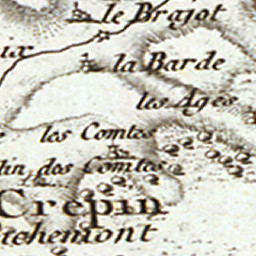 le Brajot
ix
la Barde
les Ages
les Comtes
lin des Comtes
Crepin
tchemont